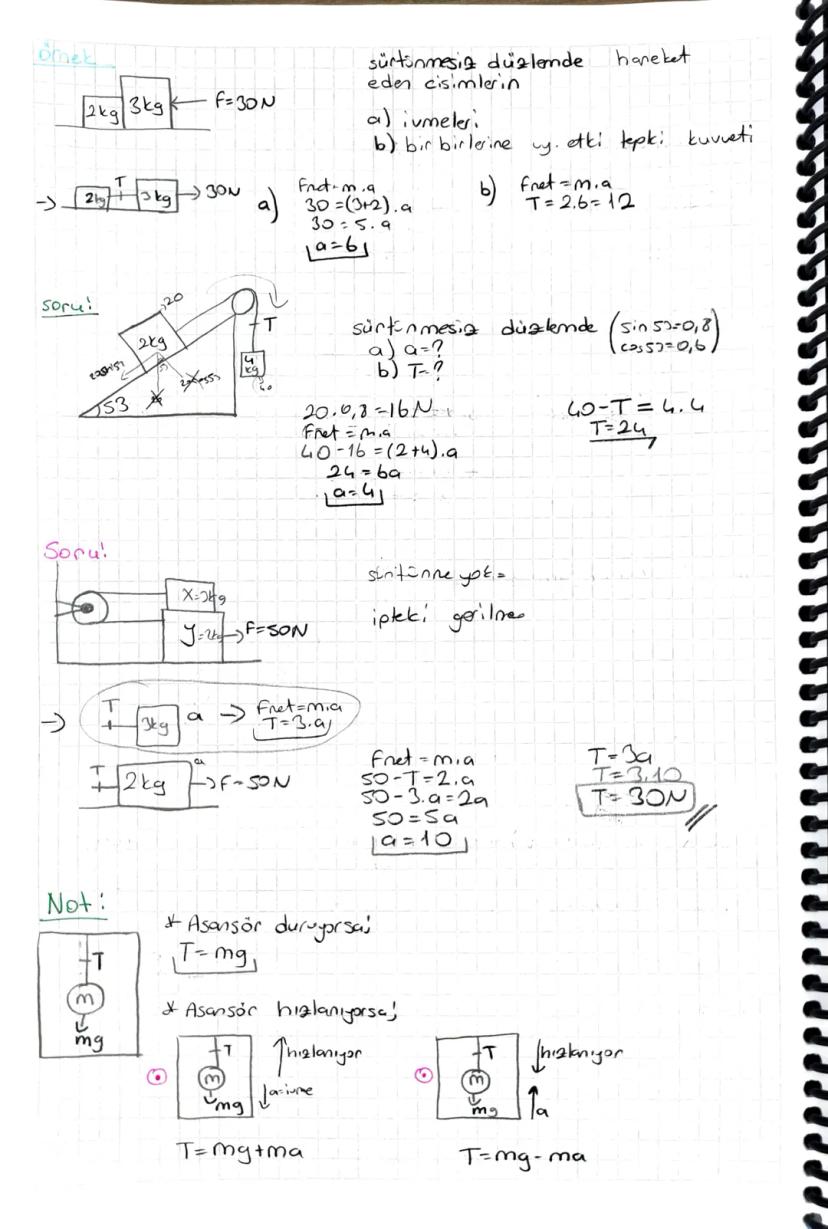 örnek
2kg 3kg F=30N
sürtünmesiz düzlemde hareket
eden cisimlerin
a) ivmeleri
b) bir birlerine uy. etki tepki kuvveti
→ 2kg T 3kg → 30N
a) Fnet=m.a
30=(3+2).a
30=5.a
a=6
b) Fnet=m.a
T=2.6=12
soru!
20
2kg
T
4 kg
53
sürtünmesiz düzlemde (sin53=0,8
cos53=0,6)
a) a=?
b) T=?
20.0,8=16N
Fnet=m.a
40-16=(2+4).a
24=6a
a=4
40-T=4.4
T=24
Soru!
Y=2kg → F=50N
yok
ipteki gerilme
→ T 3kg a → Fnet=m.a
T=3.a
T 2kg a → F=50N
Fnet=m.a
50-T=2.a
50-3.a=2a
50=5a
a=10
T=3a
T=3.10
T=30N
Not:
T
m
mg
* Asansör duruyorsa;
T=mg
* Asansör hızlanıyorsa;
T
m
mg
hızlanıyor
a=ivme
T=mg+ma
T
m
mg
hızlanıyor
a
T=mg-ma